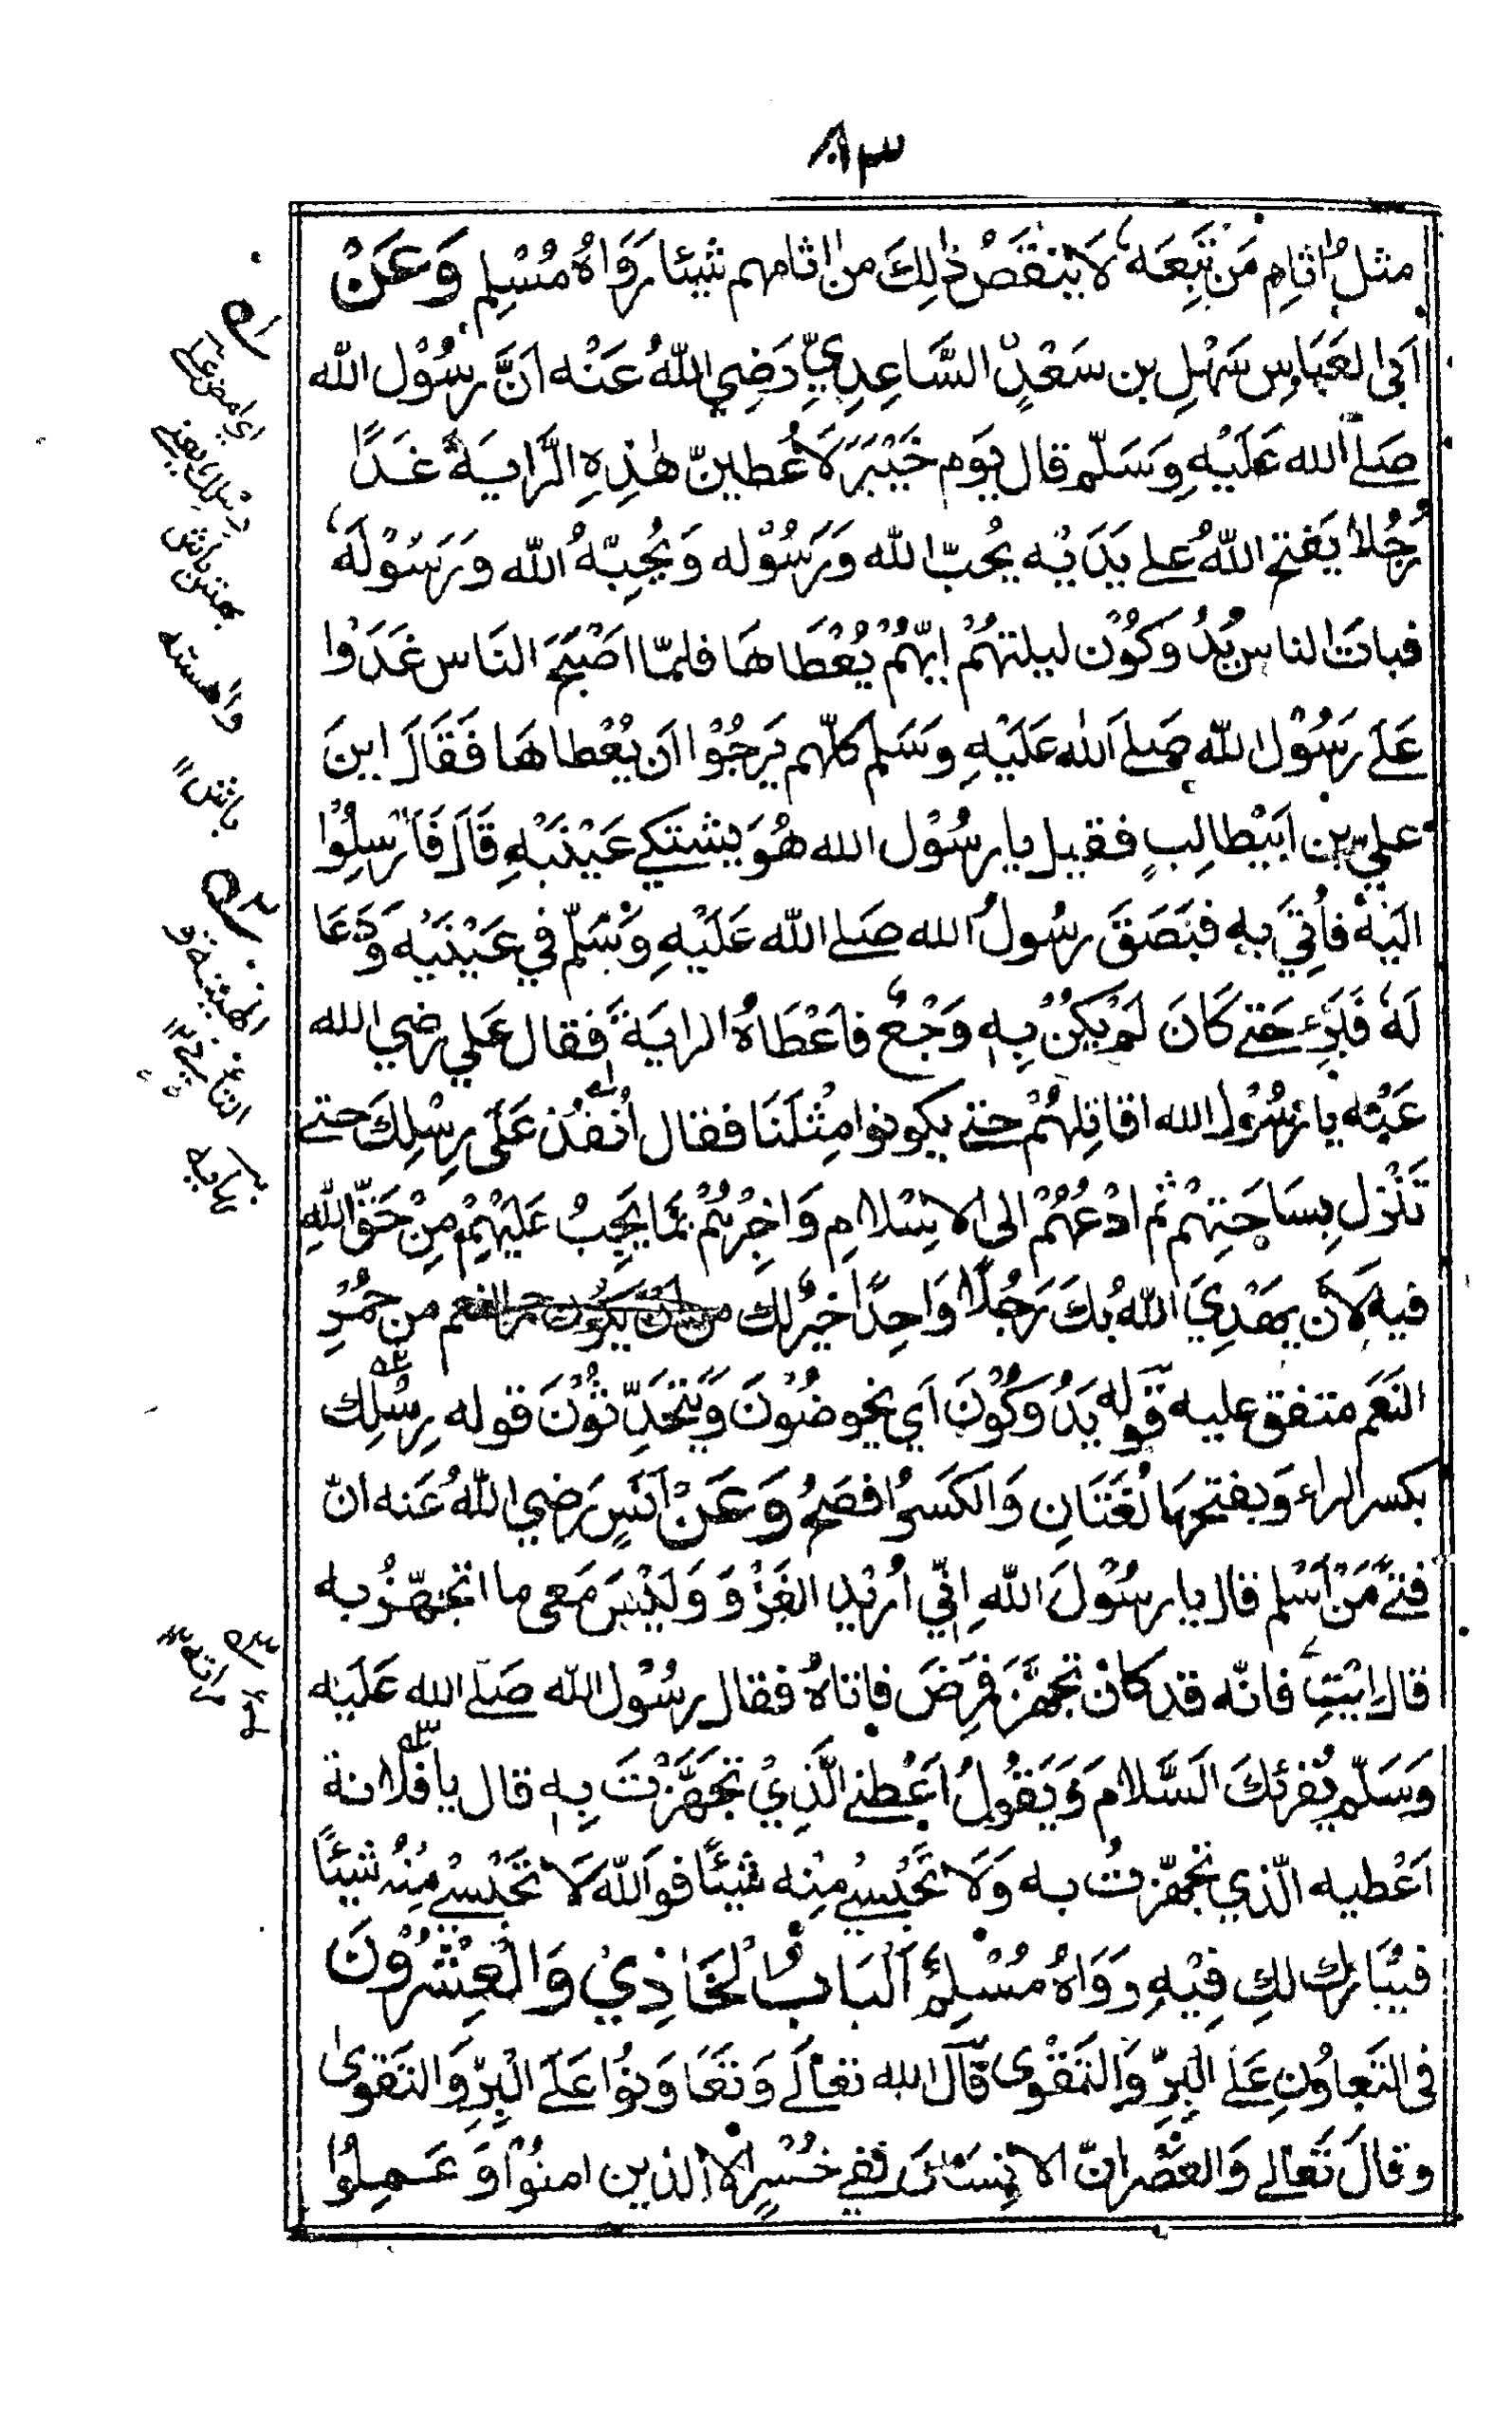 ٨٣
مثل اثامِ مَنْ تَبِعَهٗ لَا يَنْقُصُ ذٰلِكَ من اثامهم شيئا رَوَاهُ مُسْلِم وَعَنْ
اَبى العَبَاسِ سَهْلِ بن سَعْدٍ السَّاعِدِيِّ رَضِي اللّٰهُ عَنْه اَنَّ رسُوْل الله
صَلے الله عَلَيْهِ وَسَلّم قال يَوم خَيْبَرَ لَاُعْطينّ هٰذِهِ الرَّايَةَ غَدًا
رَجُلا يَفتح اللّٰهُ على يَدَيْه يُحبّ الله وَرَسُوْله وَيُحِبّهُ الله وَرَسُوْلَهٗ
فباتَ الناس يَدُوْكُوْن ليلتهُمْ اَيّهُمْ يُعْطَاهَا فلمّا اَصْبَحَ النَاس غَدَوْا
عَلَے رَسُوْل اللّٰه صَلے اَللٰه عَلَيْهِ وَسَلم كلّهم يَرجُوْا ان يُعْطاهَا فَقَالَ اينَ
عليّ بن ابَيْطالِبٍ فقيل يا رسُوْل الله هُوَ يشتكے عَيْنَيْهِ قَالَ فَاَرْسِلُوْا
اليَهْ فاُتِيَ بهٖ فبَصَقَ رسُولُ الله صَلے الله عَلَيْهِ وَسَلّم في عَيْنَيْه وَدَعَا
لَهٗ فَبَرِء حَتے كَانَ لَمْ يَكُنْ بِهٖ وَجْعٌ فاَعْطَاهُ الرايَةَ فقال عَلي رضي الله
عَنْه يا رَسُوْل الله اقاتِلهُمْ حتے يكونوا مِثْلَنَا فقال اُنفُذ عَلَى رِسْلِكَ حتے
تَنْزِل بِسَاحَتِهِمْ ثم ادْعُهُمْ الى الاسْلامِ وَاخِبْرهُمْ بمَا يَجِبُ عَلَيْهِمْ مِنْ حَقّ اللّٰهِ
فيهِ لَاَنْ يهْدِيَ اللّٰهُ بكَ رَجُلًا وَاحِدًا خيرٌ لك من حُمُرِ
النَعَم متفق عليه قوله يَدُوكُوْنَ اَي يخوضُوْنَ وَيَتَحَدّثُوْنَ قوله رِسْلِك
بكسر الراء وَبفتحهَا لُغَتَانِ وَالكَسْرُ افصَحُ وَعَنْ اَنَسٍ رَضِي اللّٰهُ عَنه انّ
فتًے مَنْ اَسْلم قال يا رسُوْلَ اللّٰهِ اِنّي اُرْيد الغَزْوَ وَلَيْسَ مَعى ما اتجهّزُ به
قال ايْتِ فانّه قد كانْ تجهّزَ فمَرِضَ فاتاهُ فقال رسُوْل اللّٰه صَلے الله عَلَيْه
وَسَلّم يُقرئكَ السَّلامَ وَيَقُولُ اَعْطنے الَّذِيْ تجَهَّزْتَ بِهٖ قال يا فُلانة
اَعْطيه الّذي تجهّزتُ به وَلَا تَحْبِسے مِنْه شيئًا فوَاللّٰه لَا تَحْبِسے مِنْهُ شيئًا
فيُبَارك لكِ فِيْهِ رَوَاهُ مُسْلِمٌ اَلبَابُ الحَادِيْ وَالْعِشْرُوْنَ
فى التَعاوُنِ عَلَے البِرِّ وَالتقْوى قَالَ الله تعالَے وَتَعَاوَنُوْا عَلَے الْبِرِّ وَالتَقوىٰ
وقالَ تَعَالے وَالعَصْر انّ الاِنسَانَ لفے خُسْرٍ اِلّا الّذين امنُوْا وَعَمِلُوا